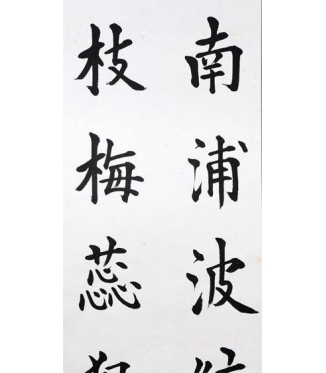 南浦波
枝梅蕊